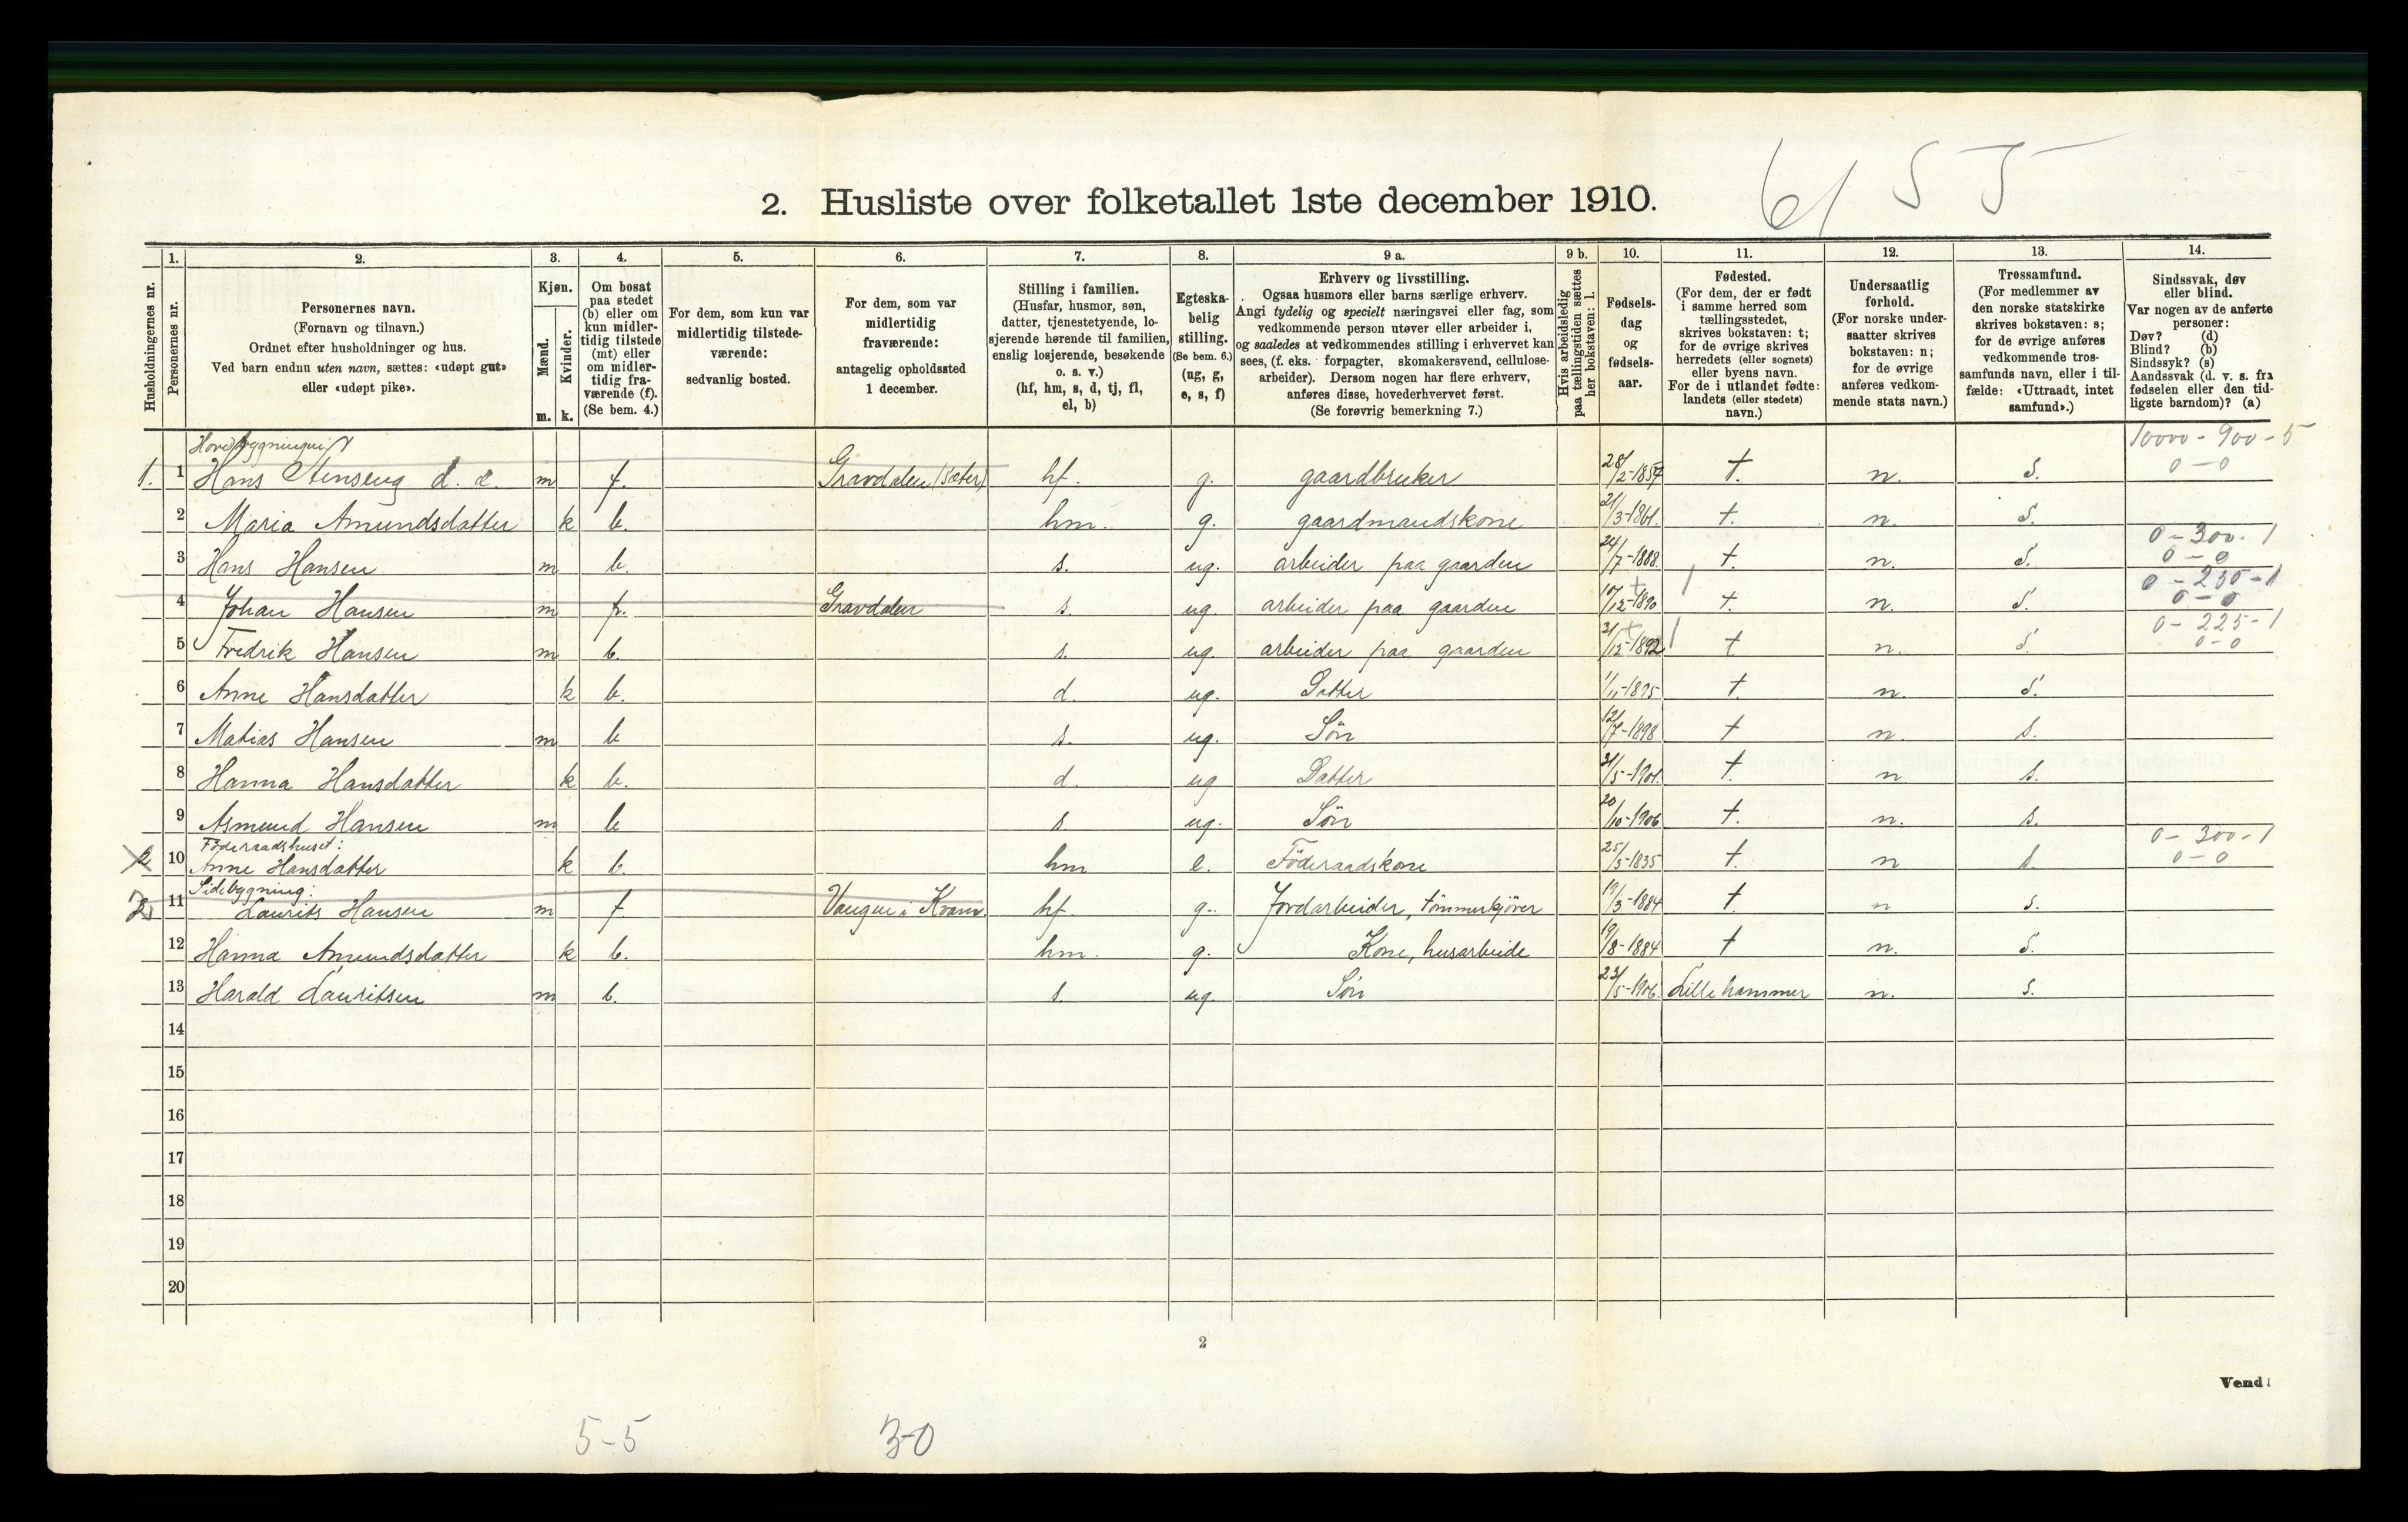 61 5 5
2. Husliste over folketallet 1ste december 1910.
1. 2. 3. 4. 5. 6. 7. 8. 9 a. 9 b. 10. 11. 12. 13. 14.
Husholdningernes nr.
Personernes nr.
Personernes navn.
(Fornavn og tilnavn.)
Ordnet efter husholdninger og hus.
Ved barn endnu uten navn, sættes: «udøpt gut»
eller «udøpt pike».
Kjøn.
Mænd.
Kvinder.
m. k.
Om bosat
paa stedet
(b) eller om
kun midler-
tidig tilstede
(mt) eller
om midler-
tidig fra-
værende (f).
(Se bem. 4.)
For dem, som kun var
midlertidig tilstede-
værende:
sedvanlig bosted.
For dem, som var
midlertidig
fraværende:
antagelig opholdssted
1 december.
Stilling i familien.
(Husfar, husmor, søn,
datter, tjenestetyende, lo-
sjerende hørende til familien,
enslig losjerende, besøkende
o. s. v.)
(hf, hm, s, d, tj, fl,
el, b)
Egteska-
belig
stilling.
(Se bem. 6.)
(ug, g,
e, s, f)
Erhverv og livsstilling.
Ogsaa husmors eller barns særlige erhverv.
Angi tydelig og specielt næringsvei eller fag, som
vedkommende person utøver eller arbeider i,
og saaledes at vedkommendes stilling i erhvervet kan
sees, (f. eks. forpagter, skomakersvend, cellulose-
arbeider). Dersom nogen har flere erhverv,
anføres disse, hovederhvervet først.
(Se forøvrig bemerkning 7.)
Hvis arbeidsledig
paa tællingstiden sættes
her bokstaven: l.
Fødsels-
dag
og
fødsels-
aar.
Fødested.
(For dem, der er født
i samme herred som
tællingsstedet,
skrives bokstaven: t;
for de øvrige skrives
herredets (eller sognets)
eller byens navn.
For de i utlandet fødte:
landets (eller stedets)
navn.)
Undersaatlig
forhold.
(For norske under-
saatter skrives
bokstaven: n;
for de øvrige
anføres vedkom-
mende stats navn.)
Trossamfund.
(For medlemmer av
den norske statskirke
skrives bokstaven: s;
for de øvrige anføres
vedkommende tros-
samfunds navn, eller i til-
fælde: «Uttraadt, intet
samfund».)
Sindssvak, døv
eller blind.
Var nogen av de anførte
personer:
Døv? (d)
Blind? (b)
Sindssyk? (s)
Aandssvak (d. v. s. fra
fødselen eller den tid-
ligste barndom)? (a)
10000 - 900 - 5
1. 1 Hans Stenseng d. e. m f. Gravdalen (sæter) hf. g. gaardbruker 28/2-1857 t. n. s. 0-0
2 Maria Amundsdatter k b. hm. g. gaardmandskone 21/3-1861. t. n. s.
0 - 300 - 1
3 Hans Hansen m b. s. ug. arbeider paa gaarden 24/7-1888. t. n. s. 0-0
0 - 230 - 1
4 Johan Hansen m f. Gravdalen s ug. arbeider paa gaarden 10/12-1890 t. n. s. 0-0
0 - 225 - 1
5 Fredrik Hansen m b. s. ug. arbeider paa gaarden 31/12-1892 t n. s. 0-0
6 Anne Hansdatter k b. d. ug. Datter 1/11-1895 t. n. s.
7 Matias Hansen m b s. ug. Søn 12/7-1898 t n. s.
8 Hanna Hansdatter k b. d. ug Datter 31/5-1901. t. n s.
9 Asmund Hansen m b s. ug. Søn 20/10-1906 t. n. s.
Føderaadshuset:
0 - 300 - 1
2 10 Anne Hansdatter k b. hm e. Føderaadskone 25/5-1835 t. n s. 0-0
Sidebygning:
2 11 Laurits Hansen m f Vangen i Kvam. hf. g. Jordarbeider, tømmerkjører 19/3-1884 t. n s.
12 Hanna Amundsdatter k b. hm. g. Kone, husarbeide 19/8-1884 t n. s.
13 Harald Lauritsen m b. s. ug. Søn 23/5-1906. Lillehammer n. s.
14
15
16
17
18
19
20
2
Vend!
5-5 3-0